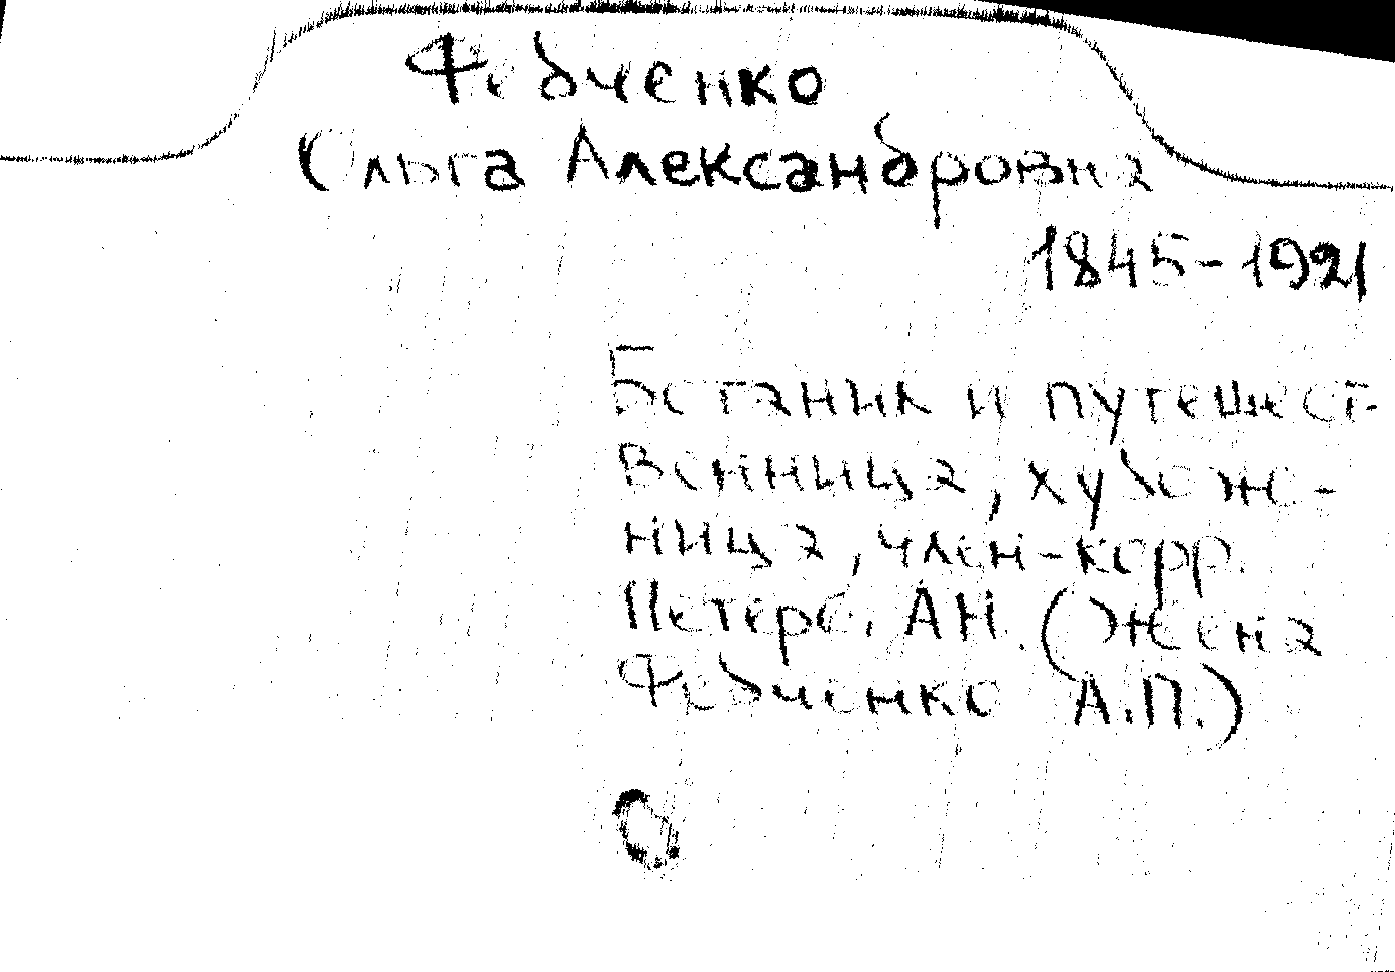 Федченко
Ольга Александровна
1845-1921
Ботаник и путешест-
венница, худож-
ница, член-корр.
Петерб. АН. (Жена
Федченко А.П.)